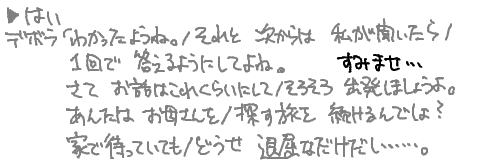 ▶はい
デボラ「わかったようね。/それと 次からは 私が聞いたら/
1回で 答えるようにしてよね。 すみませ…
さて お話はこれくらいにして/そろそろ 出発しましょうよ。
あんたは お母さんを/探す旅を 続けるんでしょ?
家で待っていても/どうせ 退屈なだけだし……。